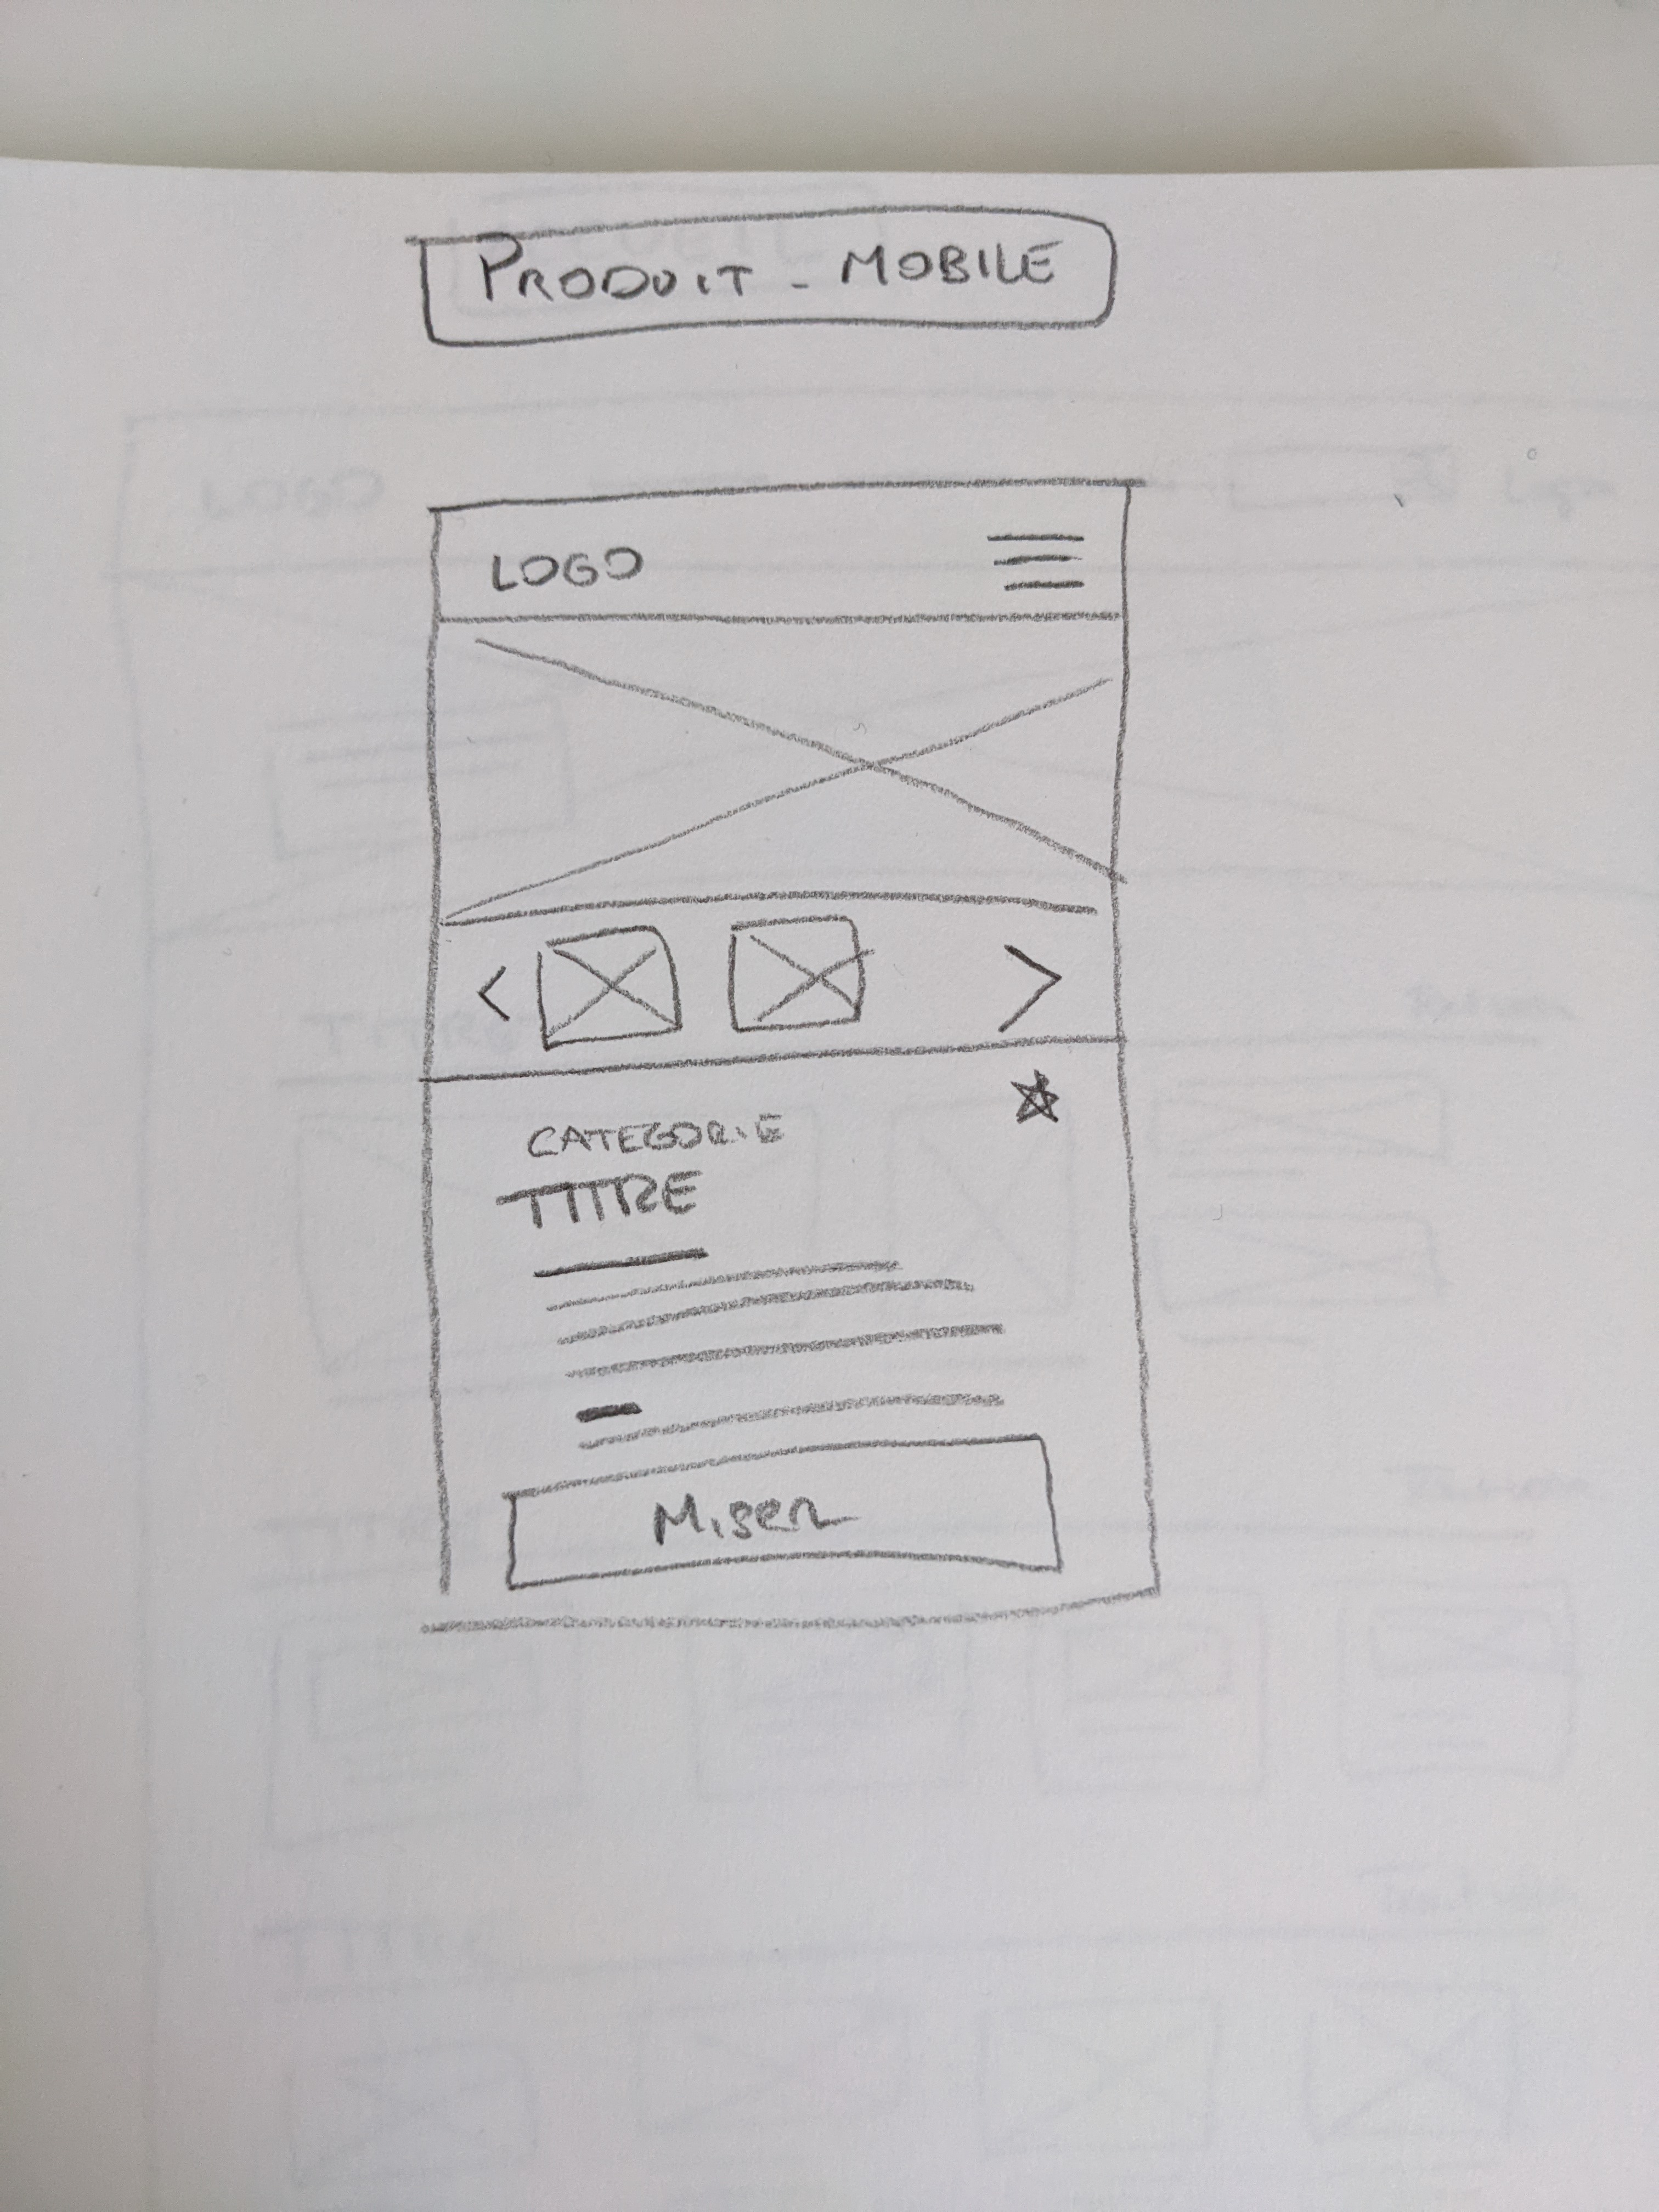 PRODUIT - MOBILE
LOGO
CATEGORIE
TITRE
Miser
LOGO
TITRE